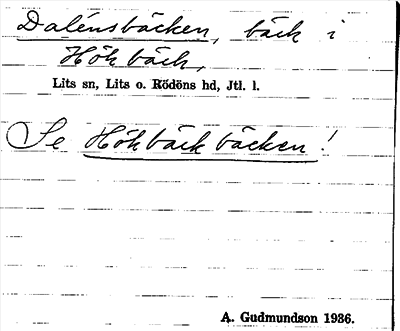 Dalénsbäcken, bäck i
Hökbäck,
Lits sn, Lits o. Rödöns hd, Jtl. l.
Se Hökbäckbäcken!
A. Gudmundson 1936.